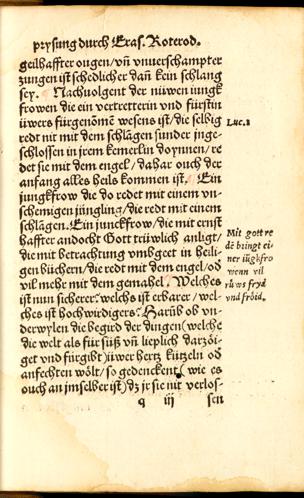 prysung durch Eras. Roterod.
geilhaffter ougen/ vñ vnuerschampter
zungen ist schedlicher dañ kein schlang
sey. Nachuolgent der nüwen iungk
frowen die ein vertretterin vnd fürstin
üwers fürgenõmẽ wesens ist/ die selbig
redt nit mit dem schlãgen sunder inge-
schlossen in jrem kemerlin doynnen/ re
det sie mit dem engel/ dahar ouch der
anfang alles heils kommen ist. Ein
jungkfrow die do redet mit einem vn-
schemigen jüngling/ die redt mit einem
schlãgen. Ein junckfrow/ die mit ernst
haffter andocht Gott trüwlich anligt/
die mit betrachtung vmbgeet in heili-
gen büchern/ die redt mit dem engel/ od
vil mehr mit dem gemahel. Welches
ist nun sicherer: welchs ist erbarer/ wel-
ches ist hochwirdigers: Harũb ob vn-
derwylen die begird der dingen (welche
die welt als für süß vñ lieplich darzöi-
get vnd fürgibt) üwer hertz kützeln od
anfechten wölt/ so gedenckent (wie es
ouch an jmselber ist) dz jr sie nit verlos-
q iij sen
Luc. 1
Mit gott re
dẽ bringt ei-
ner iũgkfro
wenn vil
rüws fryd
vnd fröid.